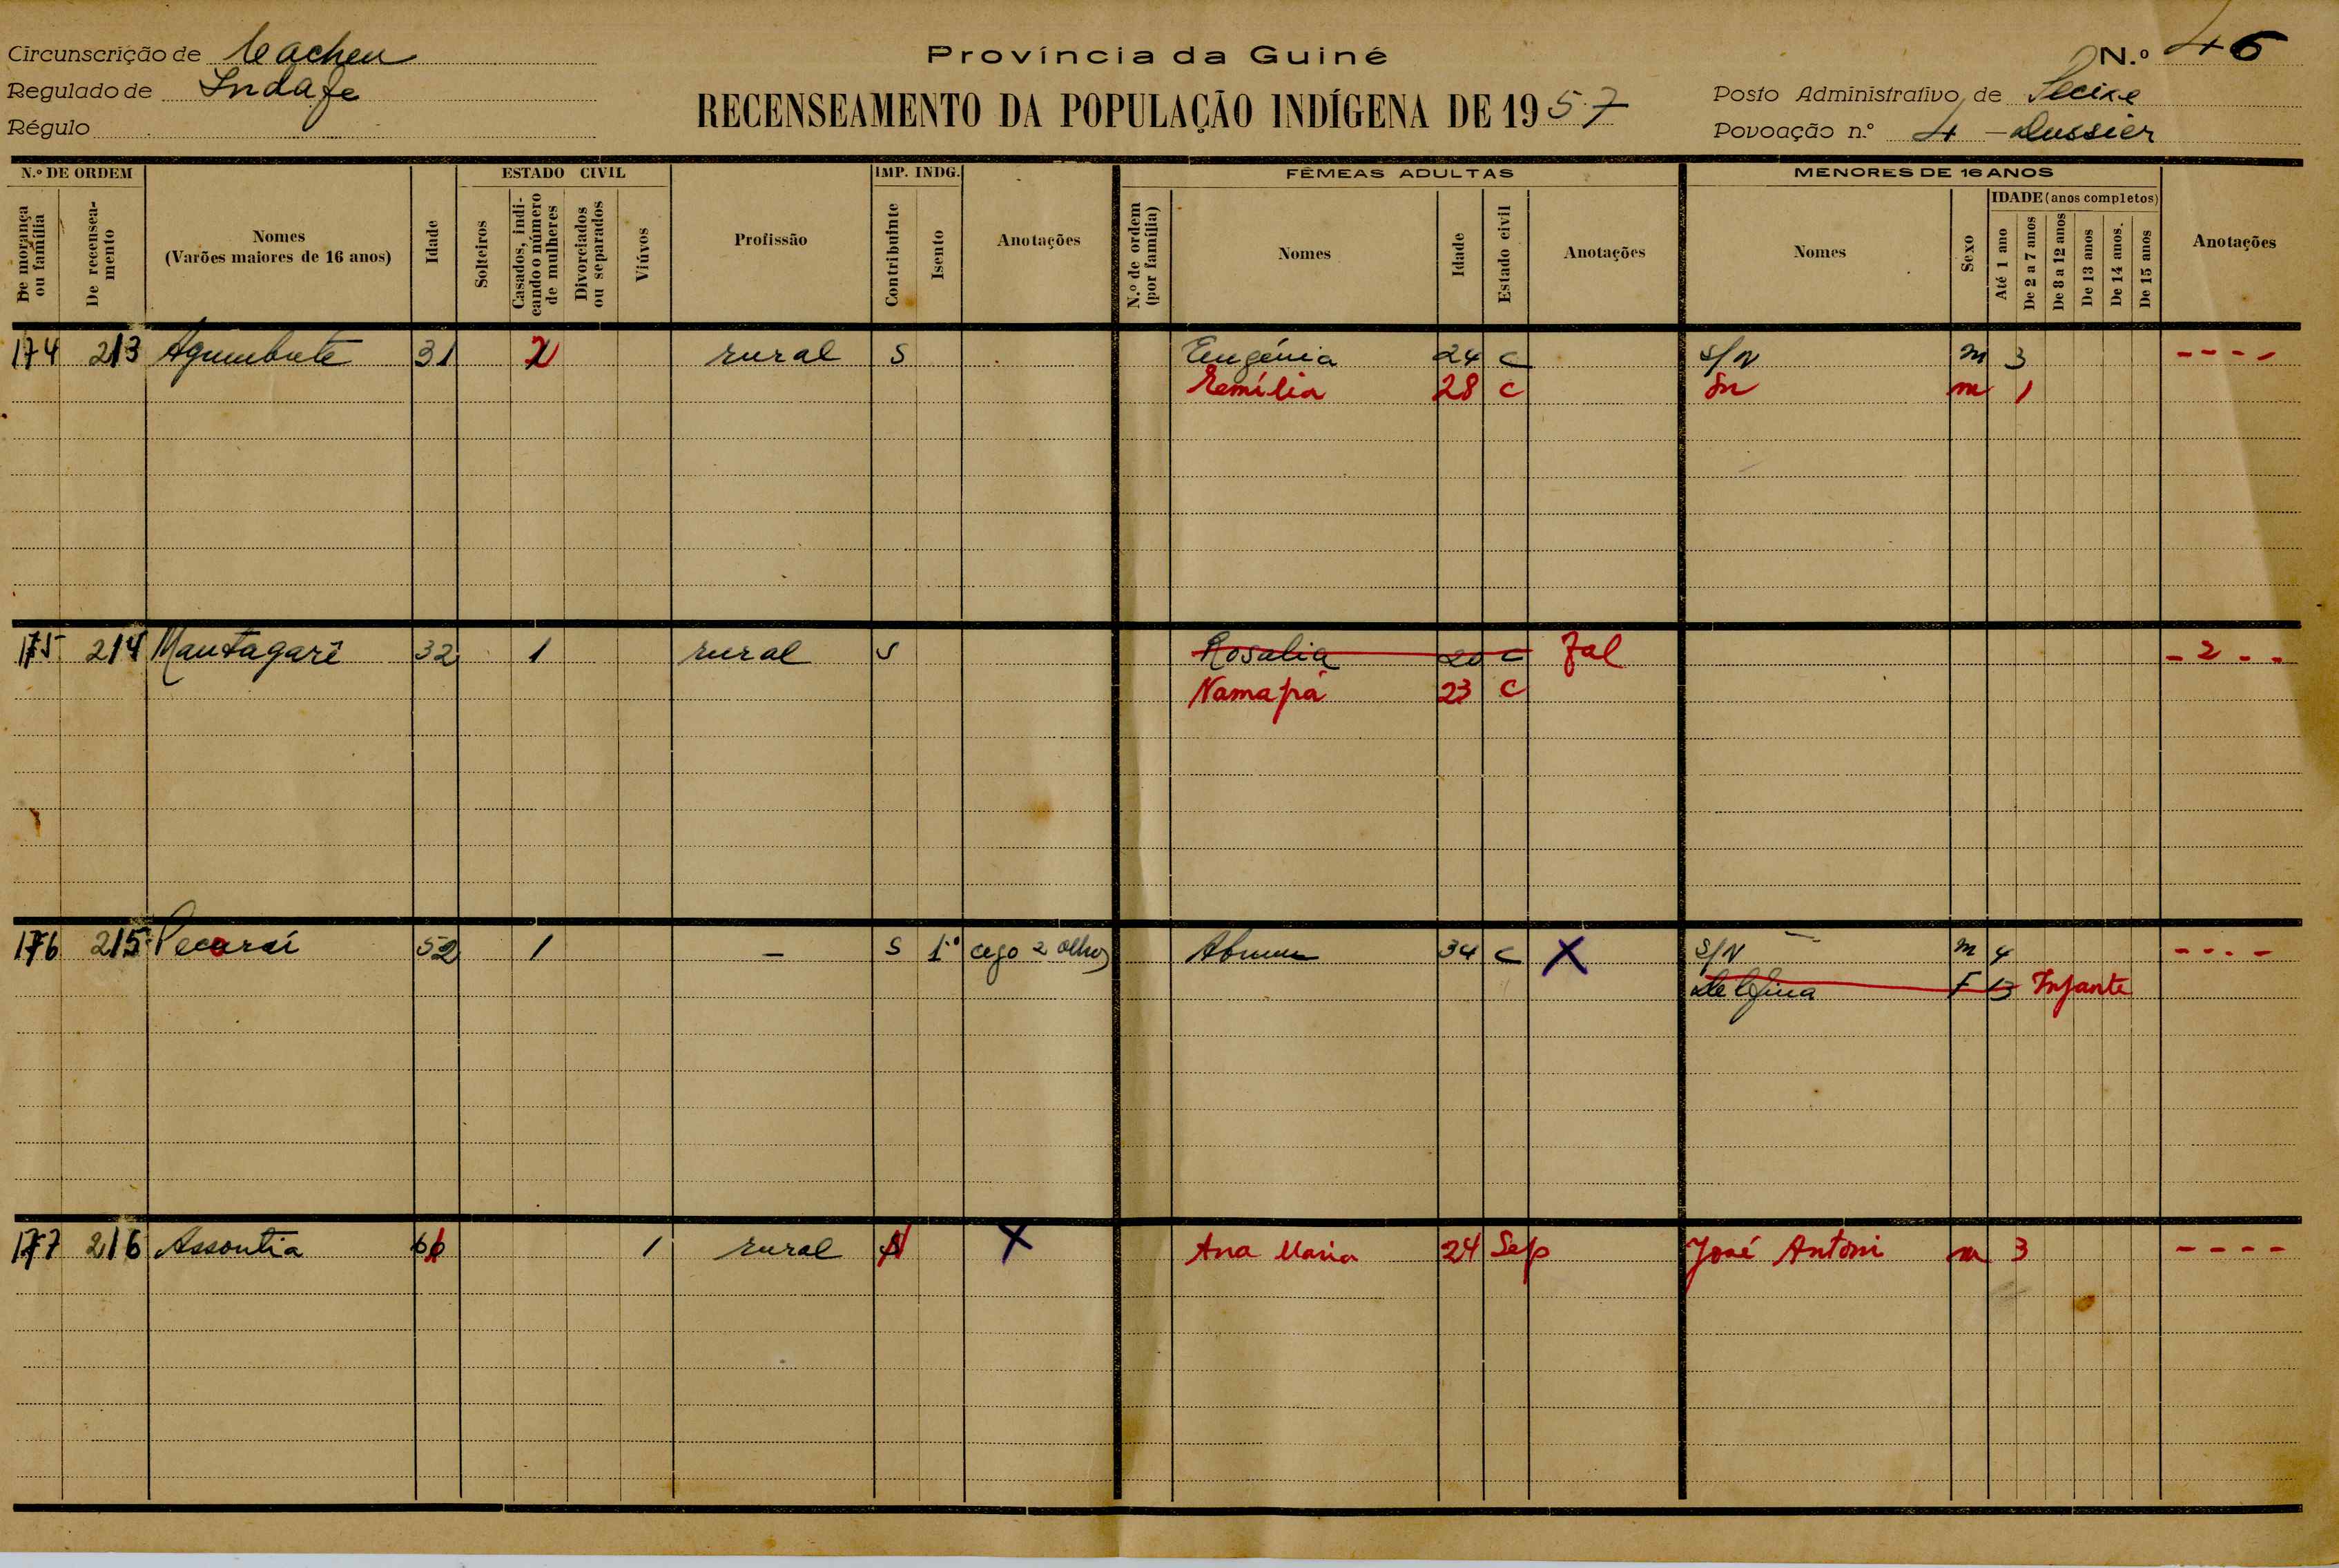 Circunscrição de Cacheu
Regulado de Indafe
Régulo
Província da Guiné
RECENSEAMENTO DA POPULAÇÃO INDÍGENA DE 1957
N.º 46
Posto Administrativo de Pecixe
Povoação n.º 4 - Dussier
N.º DE ORDEM
De morança ou família
De recenseamento
Nomes
(Varões maiores de 16 anos)
Idade
ESTADO CIVIL
Solteiros
Casados, indicando o número de mulheres
Divorciados ou separados
Viúvos
Profissão
IMP. INDG.
Contribuinte
Isento
Anotações
FÊMEAS ADULTAS
N.º de ordem (por família)
Nomes
Idade
Estado civil
Anotações
MENORES DE 16 ANOS
Nomes
Sexo
IDADE (anos completos)
Até 1 ano
De 2 a 7 anos
De 8 a 12 anos
De 13 anos
De 14 anos.
De 15 anos
Anotações
174 213 Agumbute 31 2 rural S Eugénia 24 C S/N m 3 - - - -
Eemília 28 C Sn m 1
175 214 Mantagarê 32 1 rural S Rosalia 20 C Fal - 2 - -
Namapá 23 C
176 215 52 1 - S 1º cego 2 olhos 34 C X S/N m 4 - - - -
Delfina F 13 Infante
177 216 Assontia 1 rural X Ana Maria 24 Sep José Antoni m 3 - - - -